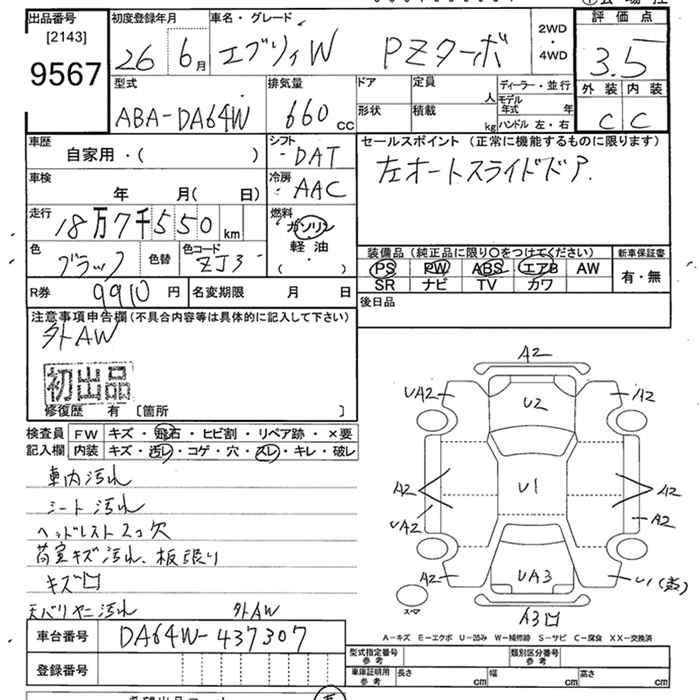 出品番号
[2143]
9567
初度登録年月
26 6月
車名・グレード
エブリィW PZターボ
2WD
・
4WD
評価点
3.5
外装 内装
C C
型式
ABA-DA64W
排気量
660 CC
ドア
形状
定員
人
積載
kg
ディーラー・並行
モデル年式 年
ハンドル 左・右
車歴
自家用・( )
シフト
DAT
車検
年 月( 日)
冷房
AAC
走行
18万7千550 km
燃料
ガソリン
軽油
( ・ )
色
ブラック
色替
色コード
ZJ3
セールスポイント (正常に機能するものに限ります)
左オートスライドドア.
装備品 (純正品に限り○をつけてください)
PS PW ABS エアB AW
SR ナビ TV カワ
新車保証書
有・無
R券 9910 円
名変期限 月 日
後日品
注意事項申告欄(不具合内容等は具体的に記入して下さい)
外AW
初出品
修復歴 有 [箇所 ]
検査員
記入欄
FW キズ・飛石・ヒビ割・リペア跡・×要
内装 キズ・汚レ・コゲ・穴・スレ・キレ・破レ
車内汚れ
シート汚れ
ヘッドレスト2コ欠
荷室キズ汚れ、板張り
キズ凹
天バリヤニ汚れ 外AW
A2
UA2 U2 A2
A2 U1 A2
UA2 A2
A2 UA3 U1
スペア A3凹
A-キズ E-エクボ U-凹み W-補修跡 S-サビ C-腐食 XX-交換済
車台番号
DA64W-437307
登録番号
型式指定番号
参考
類別区分番号
参考
車庫証明用
参考
長さ cm 幅 cm 高さ cm